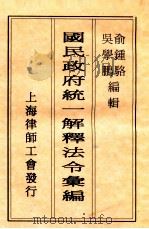 俞鍾駱
吳學鵬 編輯
國民政府統一解釋法令彙編
上海律師工會發行
www.yoututushu.com